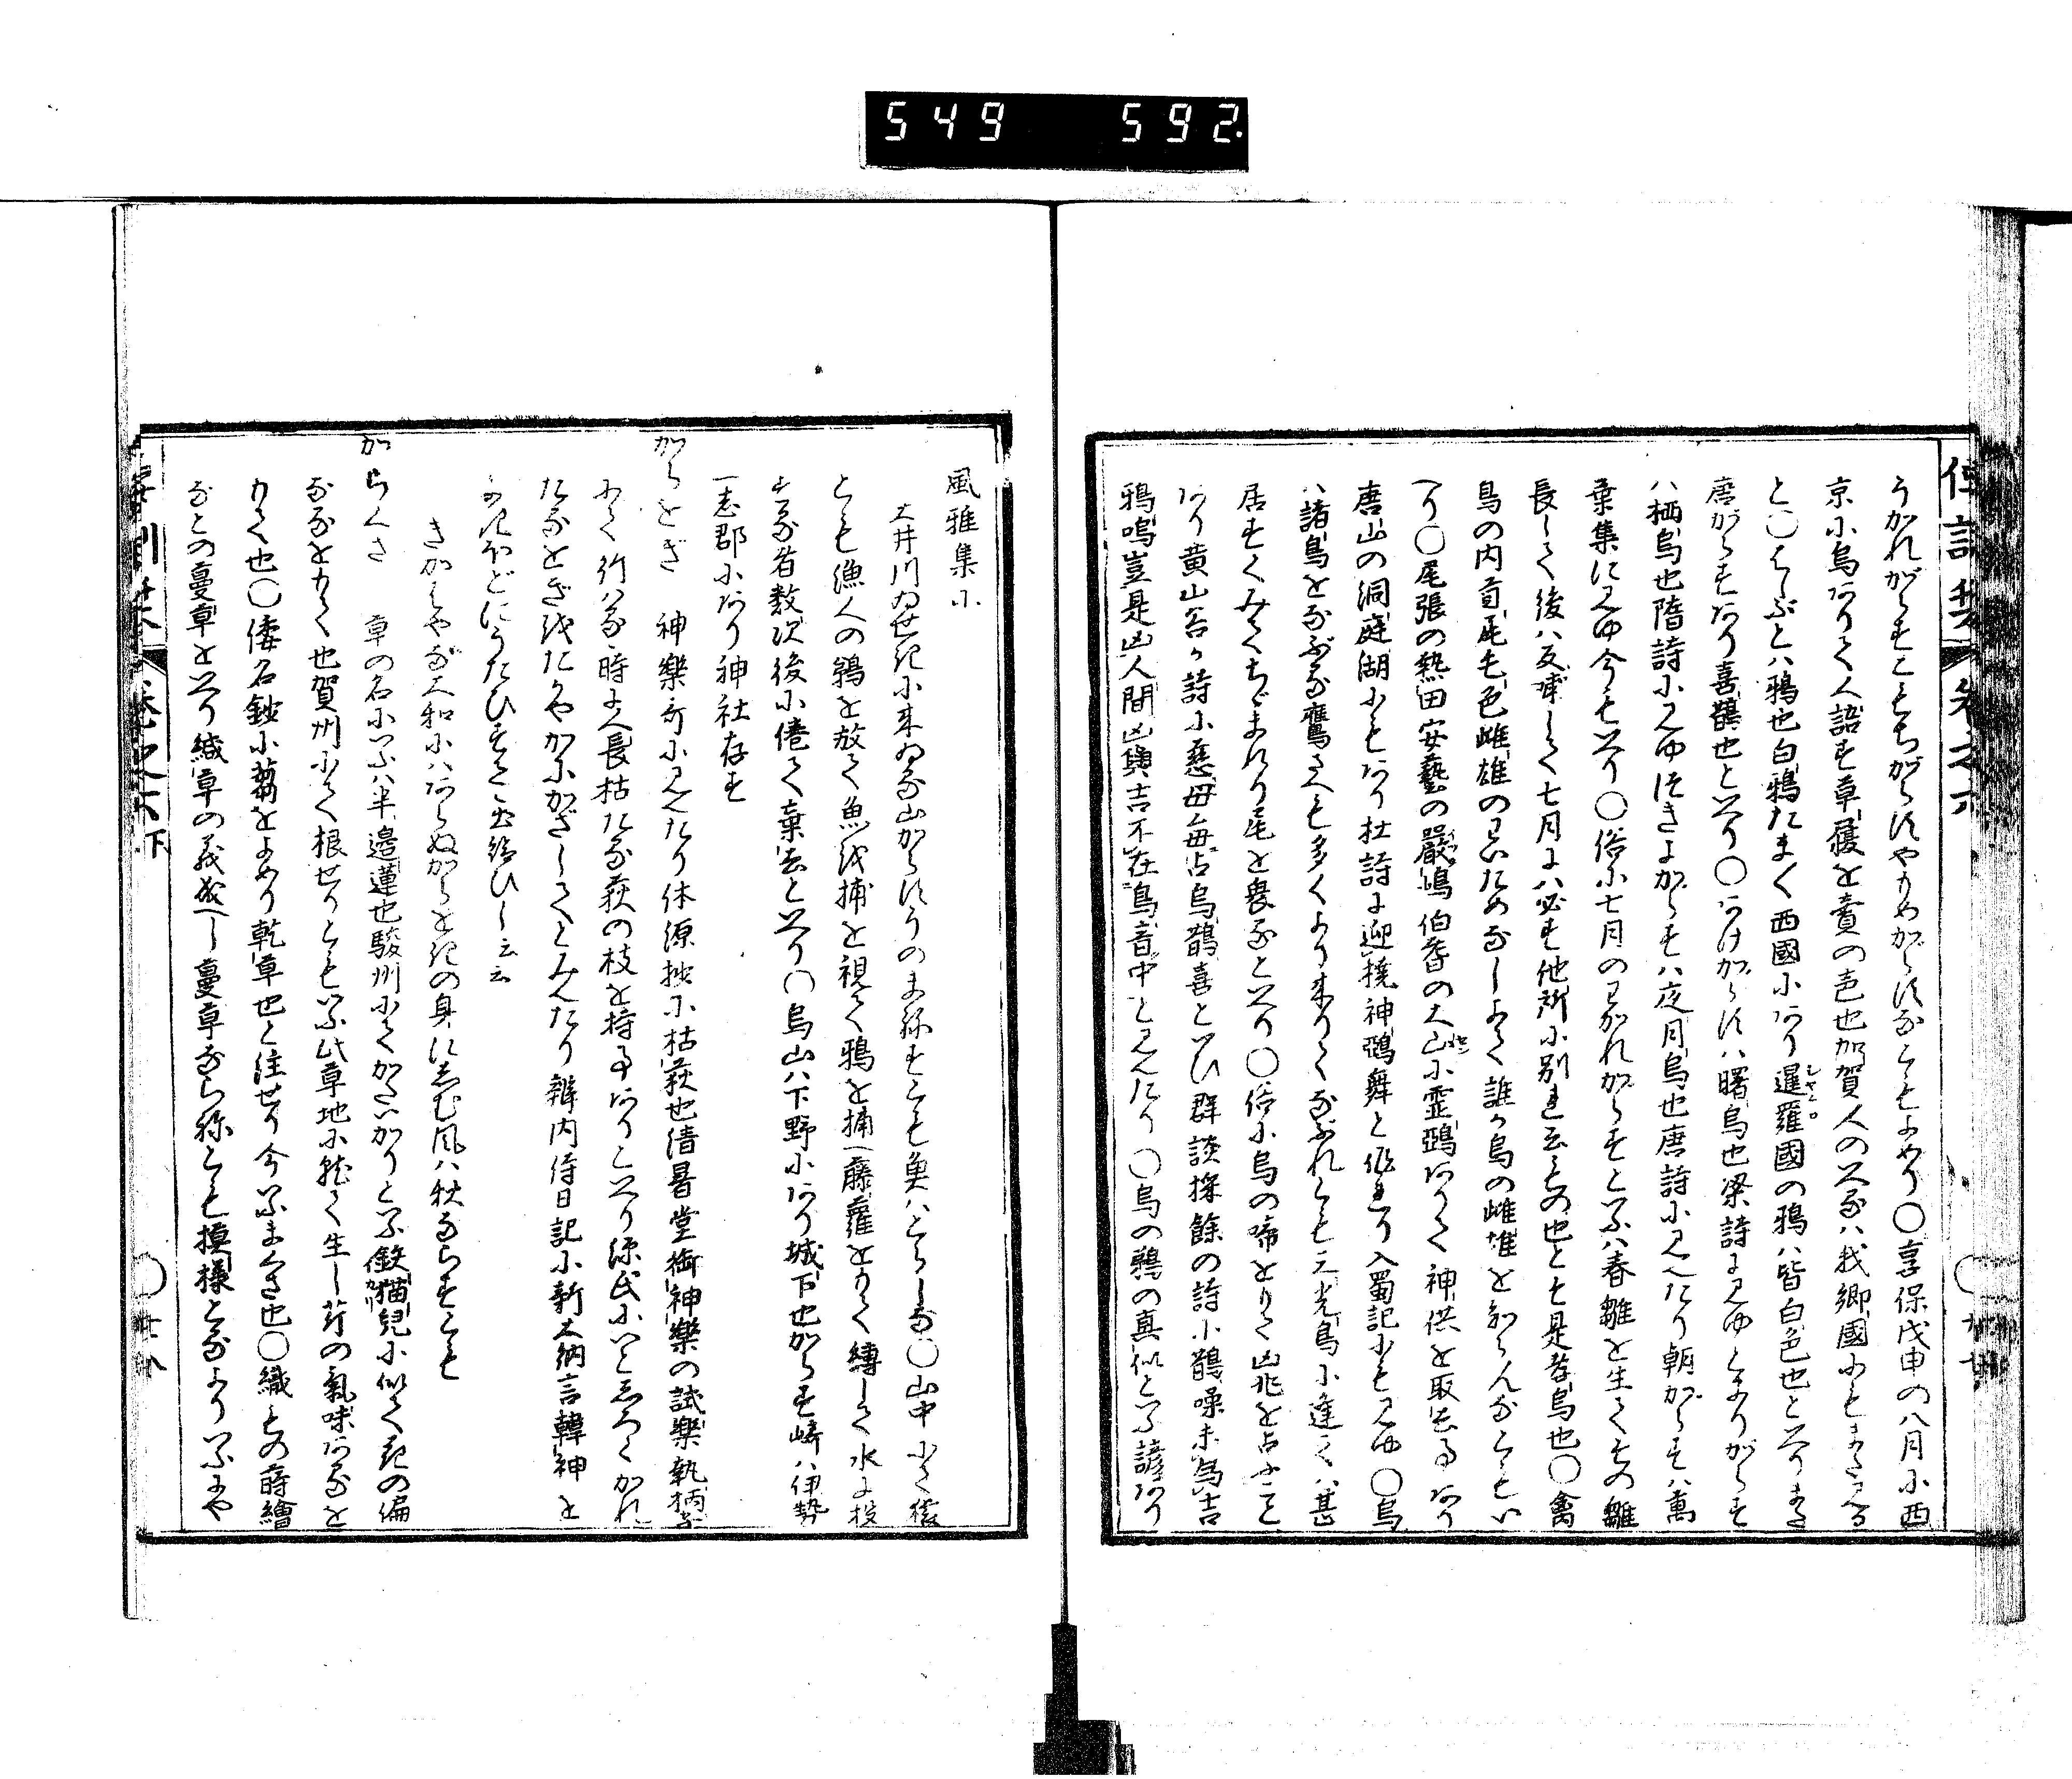 549 592
うかれがらすこもちがらすやもめがらすなともよめり〇享保戊申の八月に西
京に烏ありて人語す草履を賣の壱也加賀人のいへるは我郷國にもまさしくある
と〇はしぶとは鴉也白鴉たま〱西國にあり暹羅國の鴉は皆白色也といへりまた
唐がらすあり喜鵲也といへり〇あけがらすは曙烏也梁詩にみゆとまりがらす
は栖烏也隋詩にみゆ月よがらすは夜月烏也唐詩にみえたり朝がらすは萬
葉集にみゆ今もいへり〇俗に七月のわかれがらすといふは春雛を生てその雛
長して後は反哺して七月には必す他所に別れ去もの也とそ是孝烏也〇禽
鳥の内首尾毛色雌雄のわいためなしよて誰か烏の雌雄を知らんなともい
へり〇尾張の熱田安藝の嚴嶋伯耆の大山に霊鵶ありて神供を取去る事あり
唐山の洞庭湖にもあり杜詩に迎撓神鵶舞と作れり入蜀記にもみゆ〇烏
は諸鳥をなぶる鷹さへも多くより来りてなぶれとも三光鳥に逢ては甚
居すくみてちぢまれり尾を畏ると
あり黄山谷か詩に慈母毎占烏鵲喜といひ群談採餘の詩に鵲噪未爲吉
鴉鳴豈是凶人間凶與吉不在鳥音中とみえたり〇烏の鵜の真似といふ諺あり
風雅集に
大井川ゐせきに来ゐる山からすうのまねすとも魚はとらしな〇山中にて猿
とも漁人の鵜を放て魚を捕を視て鴉を捕へ藤蘿をもて縛して水に投
する者数次後に倦て棄去といへり〇烏山は下野にあり城下也からす崎は伊勢
一志郡にあり神社存す
からをぎ　神樂哥にみえたり体源抄に枯荻也清暑堂御神樂の試樂執柄家
にて行はる時に人長枯たる荻の枝を持事ありといへり源氏にいとしろくかれ
たるをぎをたかやかにかざしてとみえたり辨内侍日記に新大納言韓神を
うたひすまし給ひし云云
きかはやな大和にはあらぬからをきの身にしむ風は秋ならすとも
からくさ　草の名にいふは半邊蓮也駿州にてかたいかりといふ鉄猫兒に似て花の偏
なるをもて也賀州にて根せりともいふ此草地に就て生し芹の氣味あるを
もて也〇倭名鈔に蒭をよめり乾草也と注せり今いふまくさ也〇織もの蒔繪
なとの蔓草をいへり織草の義成へし蔓草ならねとも摸様となるよりいふにや